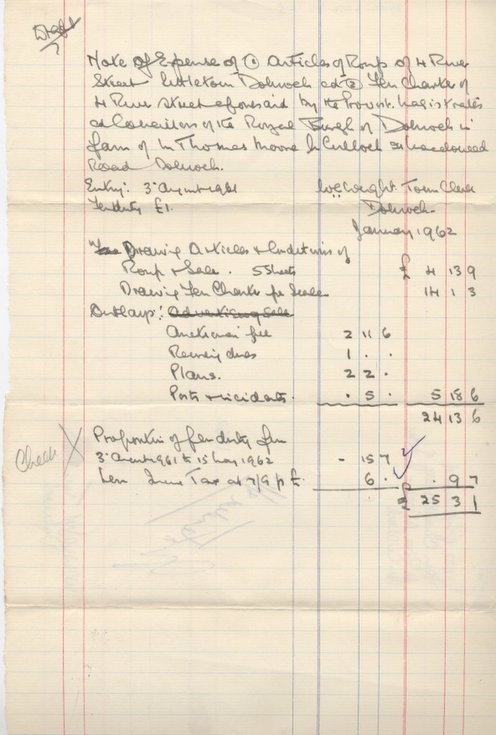 Draft
Note of Expense of ① Articles of Roup of 4 River
Street Littletown Dornoch and ② Feu Charter of
4 River Street aforesaid by the Provost, Magistrates
and Councillors of the Royal Burgh of Dornoch in
favor of Thomas Moore McCulloch
Road Dornoch.
Entry: 3rd August 1961 Town Clerk
Feuduty £1. Dornoch
January 1962
Drawing Articles & Conditions of
Roup & Sale. 5 Sheets £ 4 13 9
Drawing Feu Charter per Scale 14 1 3
Outlays: Advertising Sale
Auctioneer's fee 2 11 6
Recording dues 1 . .
Plans. 2 2 .
Posts & incidents. . 5 . 5 18 6
24 13 6
Check X
Proportion of feuduty from
3rd August 1961 to 15 May 1962 - 15 7
Less Income Tax at 7/9 p £. 6 . . 9 7
£ 25 3 1